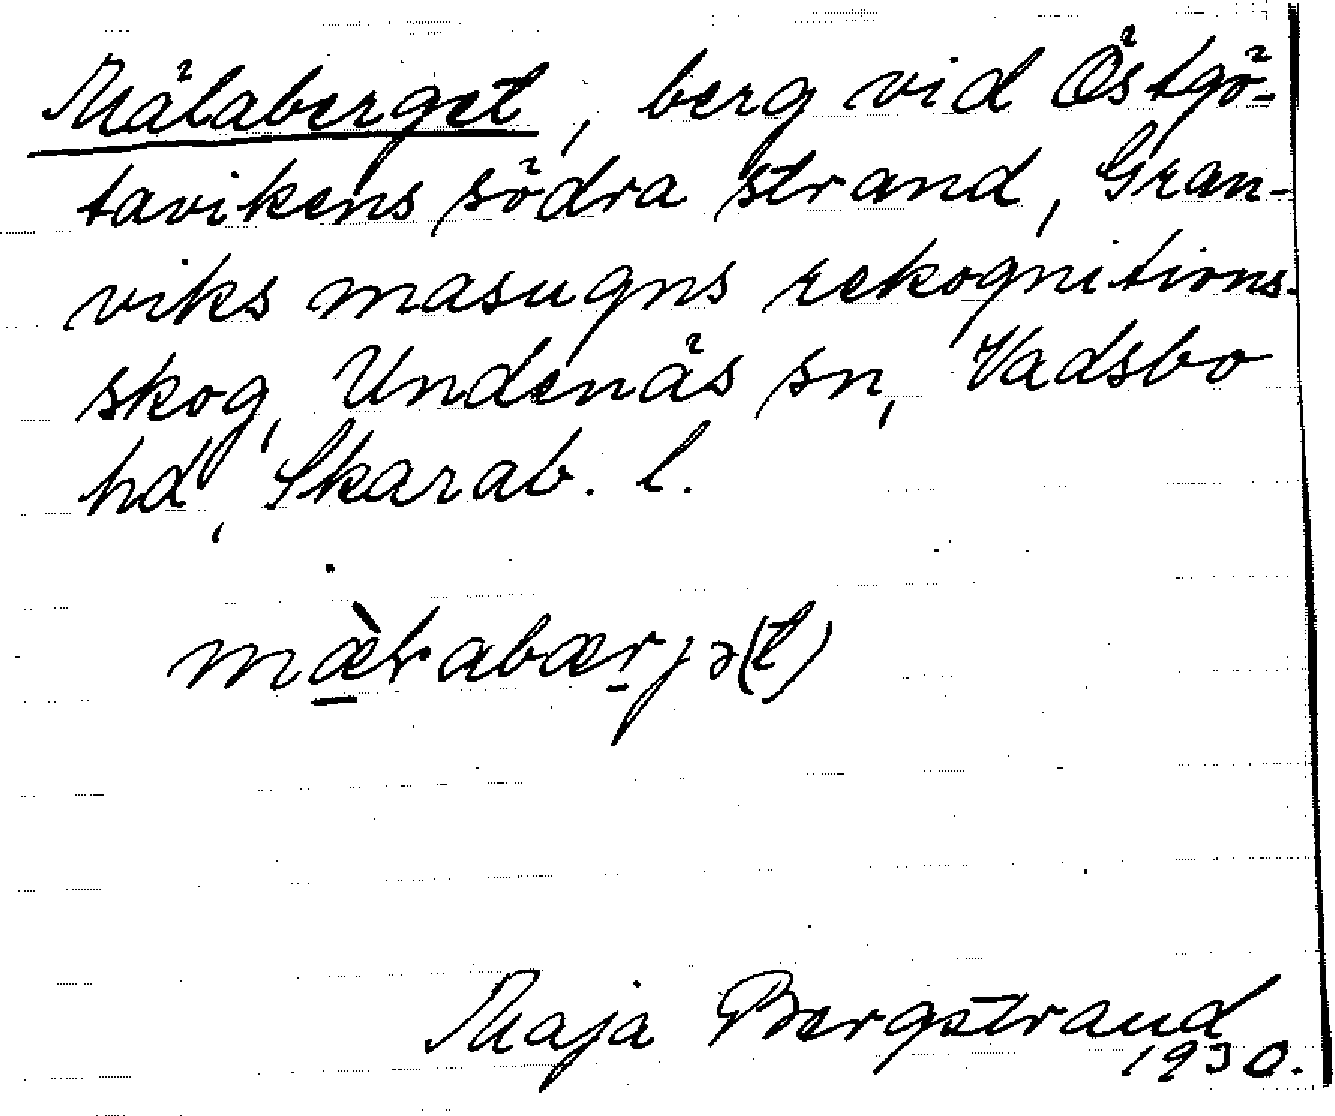 Mälaberget, berg vid Östgö-
tavikens södra strand, Gran-
viks masugns rekognitions-
skog, Undenäs sn, Vadsbo
hd, Skarab. l.
Maja Bergstrand
1930.